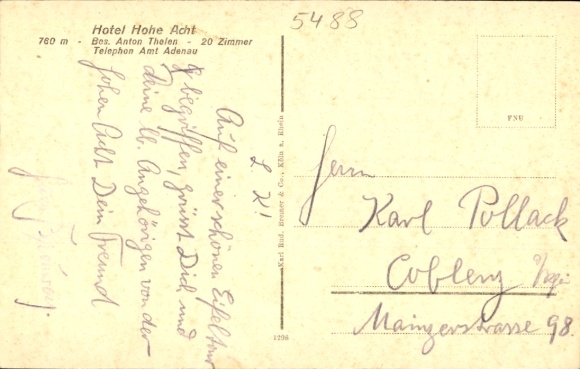 5488
Hotel Hohe Acht
760 m - Bes. Anton Thelen - 20 Zimmer
Telephon Amt Adenau
L. K!
Auf einer schönen Eifeltour
begriffen, grüsst Dich und
deine lb. Angehörigen von der
hohen Acht Dein Freund
Karl Rud. Bremer & Co., Köln a. Rhein
1296
FNU
Herrn
Karl Pollack
Coblenz
Mainzerstrasse 98.